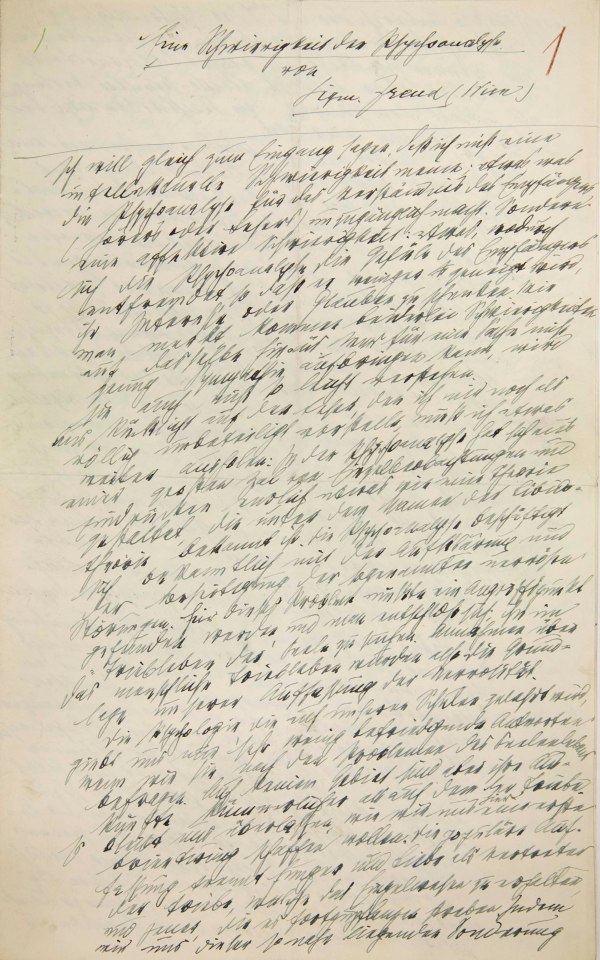 1
Eine Schwierigkeit der Psychoanalyse
von
Sigm. Freud (Wien)
Ich will gleich zum Eingang sagen, daß ich nicht eine
intellektuelle Schwierigkeit meine, etwas, was
die Psychoanalyse für das Verständnis des Empfängers
(Hörers oder Lesers) unzugänglich macht, sondern
eine affektive Schwierigkeit: etwas, wodurch
sich die Psychoanalyse die Gefühle des Empfängers
entfremdet, so daß er weniger geneigt wird,
ihr Interesse oder Glauben zu schenken. Wie
man merkt, kommen beiderlei Schwierigkeiten
auf dasselbe hinaus. Wer für eine Sache nicht
genug Sympathie aufbringen kann, wird
sie auch nicht so leicht verstehen.
Aus Rücksicht auf den Leser, den ich mir noch als
völlig unbeteiligt vorstelle, muß ich etwas
weiter ausholen. In der Psychoanalyse hat sich aus
einer großen Zal von Einzelbeobachtungen und
Eindrücken endlich etwas wie eine Theorie
gestaltet, die unter dem Namen der Libido-
theorie bekannt ist. Die Psychoanalyse beschäftigt
sich bekanntlich mit der Aufklärung und
der Beseitigung der sogenannten nervösen
Störungen. Für dieses Problem mußte ein Angriffspunkt
gefunden werden und man entschloß sich, ihn im
Triebleben der Seele zu suchen. Annahmen über
das menschliche Triebleben wurden also die Grund-
lage unserer Auffassung der Nervosität.
Die Psychologie, die auf unseren Schulen gelehrt wird,
giebt uns nur sehr wenig befriedigende Antworten,
wenn wir sie nach den Problemen des Seelenlebens
befragen. Auf keinem Gebiet sind aber ihre Aus-
künfte kümmerlicher als auf dem der Triebe.
Es bleibt uns überlassen, wie wir uns hier eine erste
Orientirung schaffen wollen. Die populäre Auf-
fassung trennt Hunger und Liebe als Vertreter
der Triebe, welche das Einzelwesen zu erhalten,
und jener, die es fortzupflanzen streben. Indem
wir uns dieser so nahe liegenden Sonderung